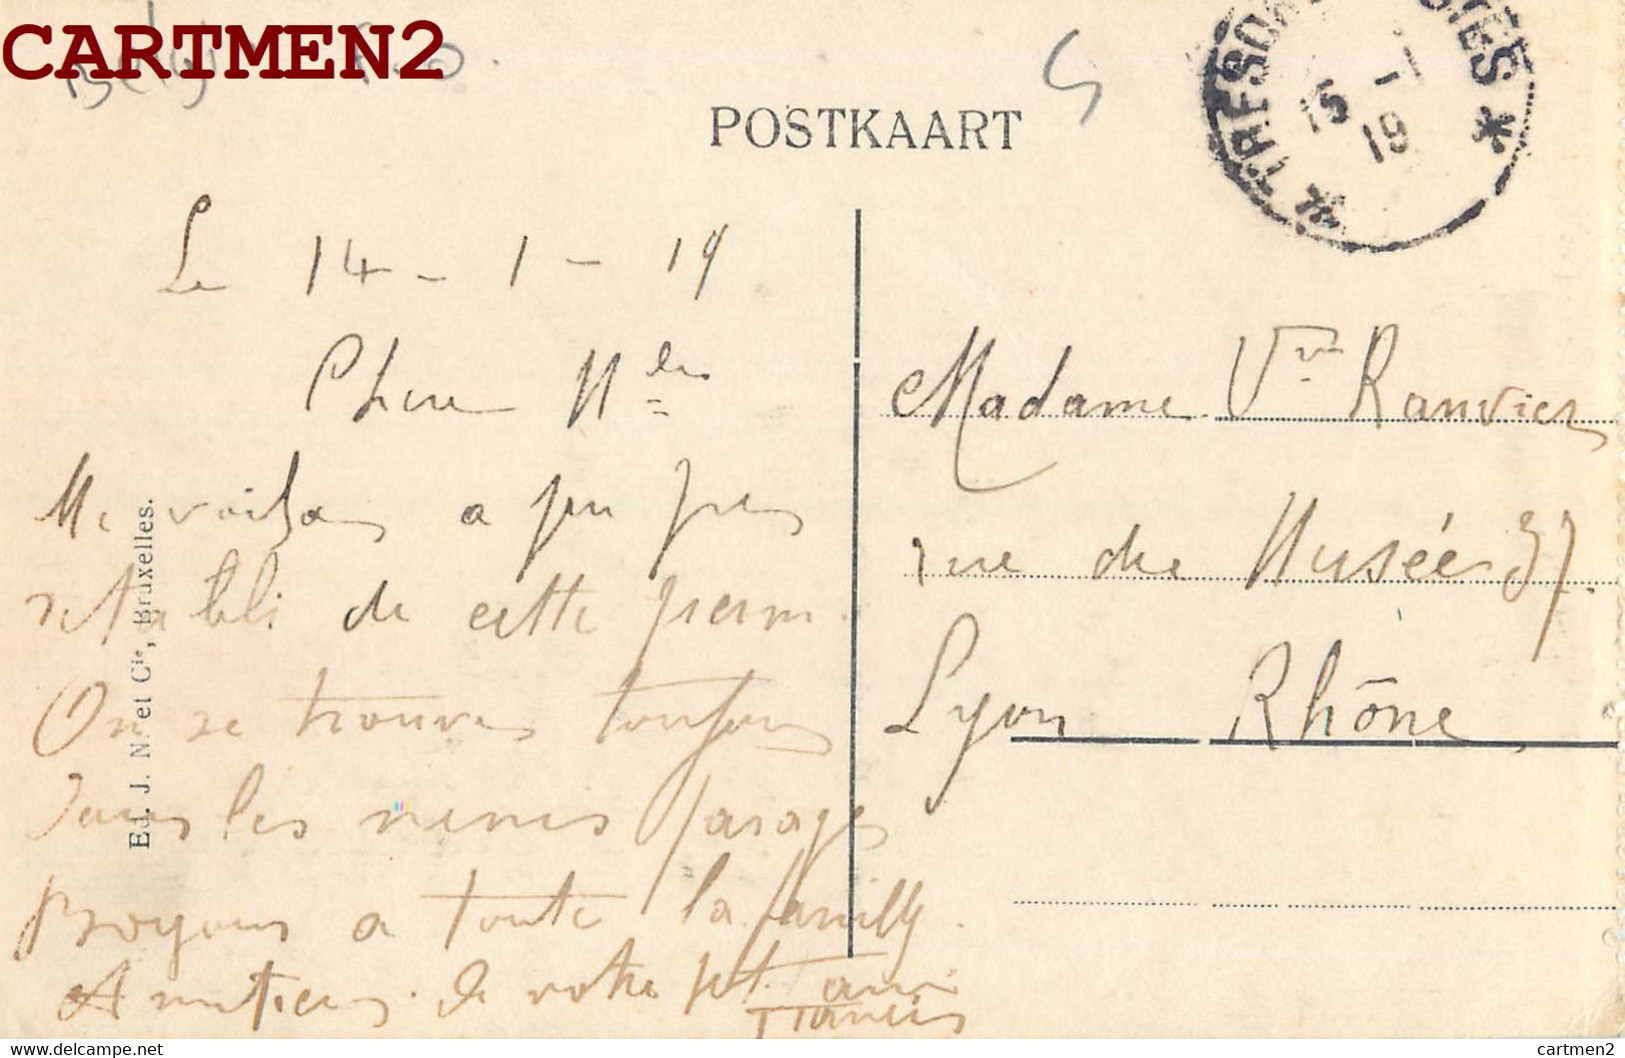 CARTMEN2
Belg
POSTKAART
TRESOR POSTES
15 1
19
Le 14 - 1 - 19
Chere
Me voila a peu pres
retabli de cette perm.
On se trouve toujours
dans les memes parages
a toute la familly.
Amities. de votre pet. ami
Francis
Ed. J. N. et Cie, Bruxelles.
Madame Vve Ranvier
rue du Musée 37.
Lyon Rhône
www.delcampe.net
cartmen2